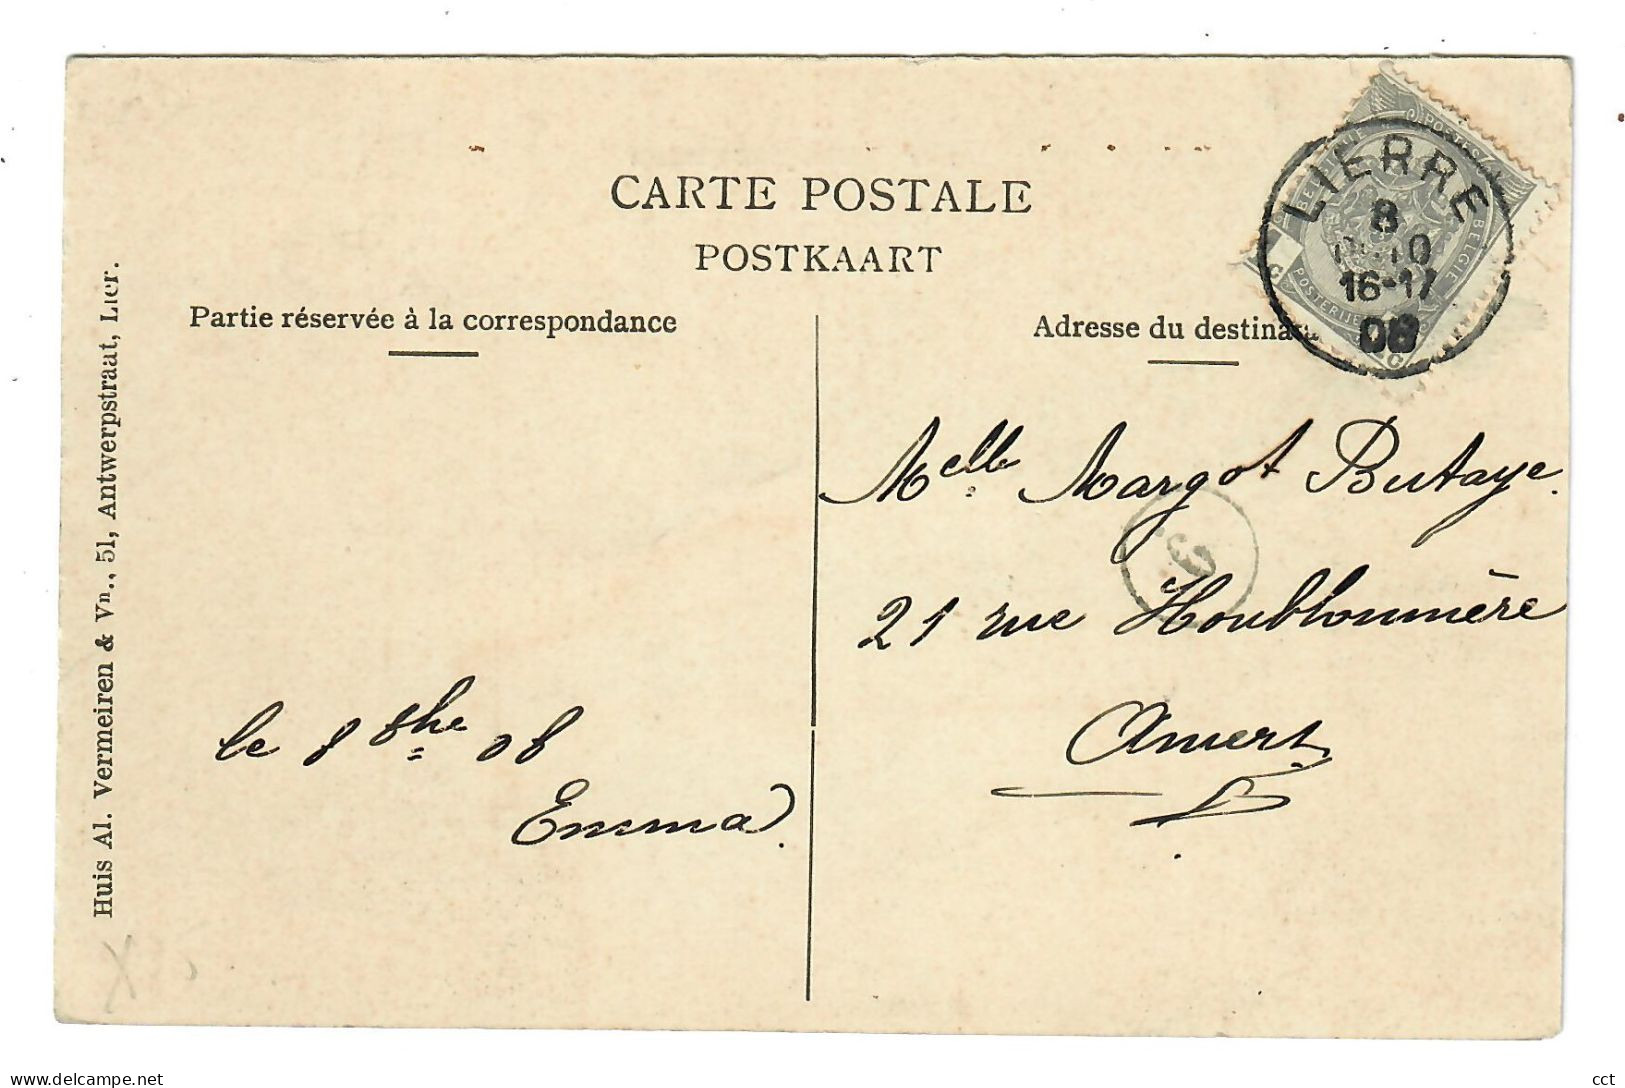 CARTE POSTALE
POSTKAART
Partie réservée à la correspondance
Adresse du destina
LIERRE
8
10
16-17
08
BELGIQUE POSTES
BELGIE POSTERIJEN
Melle Margot Butaye.
21 rue Houblonnière
Anvers
le 8 8bre 08
Emma.
Huis Al. Vermeiren & Vn., 51, Antwerpstraat, Lier.
delcampe.net
cct